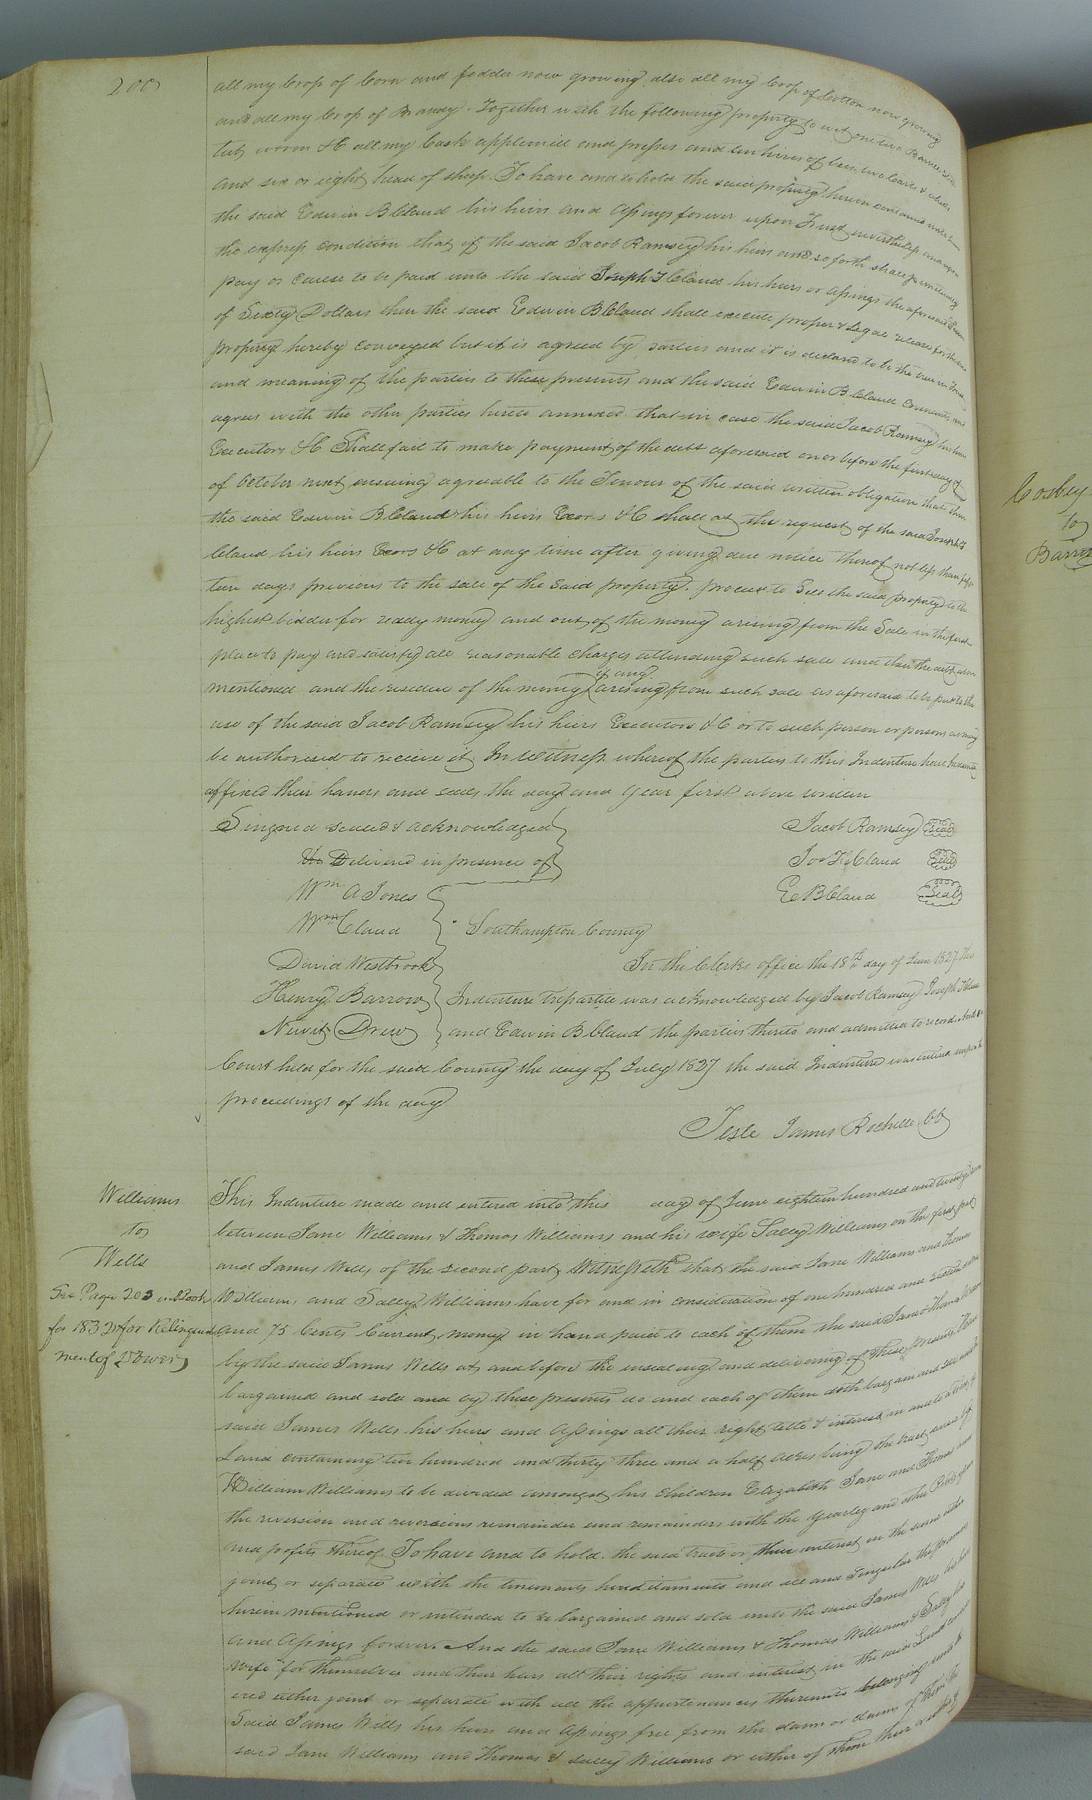 200
all my Crop of Corn and fodder now growing also all my Crop of Cotton now growing
and all my Crop of Brandy. Together with the following property to wit one two
tub worm &C all my Cask applemill and presses and ten hives of bees, two
and six or eight head of sheep. To have and to hold the said property herein contained
the said Edwin B Claud his heirs and Assings forever upon Trust nevertheless and upon
the express condition that if the said Jacob Ramsey his heirs and so forth shall
pay or cause to be paid unto the said Joseph T Claud his heirs or Assings the aforesaid Sum
of Sixty Dollars then the said Edwin B Claud shall execute proper & Legal release for the
property hereby conveyed but it is agreed by parties and it is declared to be the true
and meaning of the parties to these presents and the said Edwin B Claud Covenants and
agrees with the other parties hereto annexed that in case the said Jacob Ramsey his heirs
Executors &C Shall fail to make payment of the debt aforesaid on or before the first day
of October next ensuing agreeable to the Tenour of the said written obligation that then
the said Edwin B Claud his heirs Exors &C shall at the request of the said Joseph T
Claud his heirs Exors &C at any time after giving due notice thereof not less than
ten days previous to the sale of the said property. proceed to Sell the said property to the
highest bidder for ready money and out of the money arising from the Sale in the first
place to pay and satisfy all reasonable charges attending such sale and then the debt above
if any
mentioned and the residue of the money arising from such sale as aforesaid to be put to the
use of the said Jacob Ramsey his heirs Executors &C or to such person or persons as may
be authorised to recieve it In witness whereof the parties to this Indenture have hereunto
affixed their hands and seals the day and year first above written
Singned sealed & acknowledged
Jacob Ramsey Seal
the Delivered in presence of
Jo T Claud Seal
Wm A Jones
E B Claud Seal
Wm Claud
Southampton County
David Westbrook
In the Clerks office the 18th day of June 1827 This
Henry Barrow
Indenture trepartite was acknowledged by Jacob Ramsey Joseph T Claud
Newit Drew
and Edwin B Claud the parties thereto and admitted to record And at a
Court held for the said County the day of July 1827 the said Indenture was
proceedings of the day
Teste James Rochelle CC
Williams
to
Wells
See Page 203 in D Book
for 1832 for Relinquish
ment of Dower
This Indenture made and entered into this day of June eighteen hundred and twenty
between Jane Williams & Thomas Williams and his wife Sally Williams on the first part
and James Wells of the second part Witnesseth that the said Jane Williams and Thomas
Williams and Sally Williams have for and in consideration of one hundred and
and 75 Cents Current money in hand paid to each of them the said Jane & Thomas
by the said James Wells at and before the ensealing and delivering of these presents
bargained and sold and by these presents do and each of them doth bargain and Sell
said James Wells his heirs and Assings all their right title & interest in and to a
Land containing two hundred and thirty three and a half acres being the tract
William Williams to be divided amongst his Children Elizabeth Jane and Thomas
the reversion and reversions remainder and remainders with the yearly and other Rents
and profits thereof To have and to hold the said tract or their interest in the same
joint or separate with the tenements hereditaments and all and Singular the
herein mentioned or intended to be bargained and sold unto the said James Wells his heirs
and Assings forever. And the said Jane Williams & Thomas Williams & Sally his
Wife for themselves and their heirs all their rights and interest in the said Land
either joint or separate with all the appurtenances thereunto belonging unto the
Said James Wells his heirs and Assings free from the claim or claims of
said Jane Williams and Thomas & Sally Williams or either of them their
Cosby
to